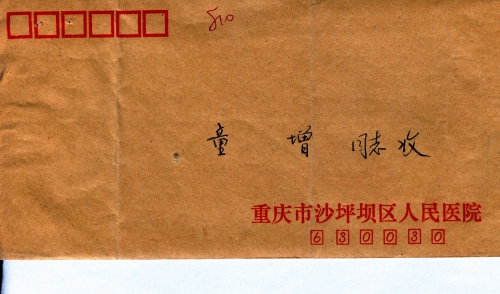 510
童 增 同志收
重庆市沙坪坝区人民医院
630030